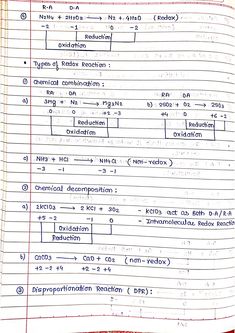 R.A O.A
⑤ N2H4 + 2H2O2 ⟶ N2 + 4H2O (Redox)
-2 -1 0 -2
Reduction
Oxidation
• Types of Redox Reaction :
① Chemical combination :
RA OA RA OA
a) 3Mg + N2 ⟶ Mg3N2 b) 2SO2 + O2 ⟶ 2SO3
0 0 +2 -3 +4 0 +6 -2
Reduction Reduction
Oxidation Oxidation
c) NH3 + HCl ⟶ NH4Cl (non-redox)
-3 -1 -3 -1
② Chemical decomposition :
a) 2KClO3 ⟶ 2KCl + 3O2 - KClO3 act as Both O.A/R.A
+5 -2 -1 0 - Intramolecular Redox Reaction
Oxidation
Reduction
b) CaCO3 ⟶ CaO + CO2 (non-redox)
+2 +4 -2 +2 -2 +4
③ Disproportionation Reaction (DPR) :